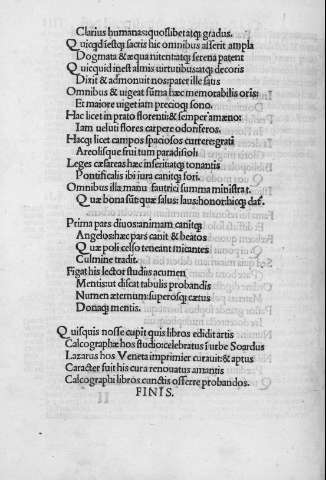 Clarius humanas:quoslibetatq; gradus.
Quicqd iestq; sacris hic omnibus asserit ampla
Dogmata & æqua nitentatq; serena patent
Quicquid inest almis uirtutibusatq; decoris
Dixit & admonuit nos:patet ille satus
Omnibus & uigeat sūma hæc memorabilis oris:
Et maiore uiget iam precioq; sono.
Hac licet in prato florenti:& semper amœno:
Iam ueluti flores carpere odoriferos.
Hacq; licet campos spaciosos currere:grati
Areolisque frui tum paradisoli
Leges cæsareas hæc inseritatq; tonantis
Pontificalis ibi iura canitq; fori.
Omnibus illa manu fautrici summa ministrat.
Quæ bona sūt:quæ salus:laus:honor:hicq; daf.
Prima pars diuos:animam canitq;
Angelos:hæc pars canit & beatos
Quæ poli celso teneant micantes
Culmine tradit.
Figat his lector studiis acumen
Mentis:ut discat tabulis probandis
Numen æternum:superosq; cœtus
Donaq; mentis.
Quisquis nosse cupit quis libros edidit artis
Calcographæ hos studio:celebratus ī urbe Soardus
Lazarus hos Veneta imprimier curauit:& aptus
Caracter fuit his cura renouatus amantis
Calcographi libros cunctis offerre probandos.
FINIS.